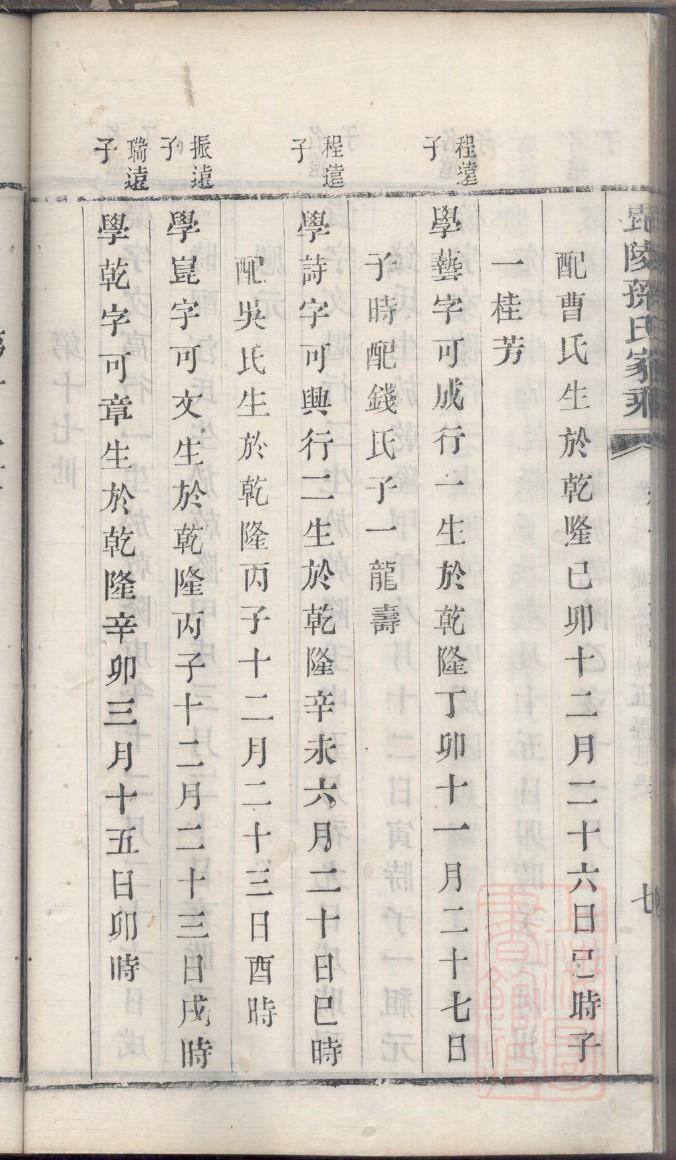 毘陵孫氏家乘
七
配曹氏生於乾隆己卯十二月二十六日巳時子
一桂芳
程遠子
學藝字可成行一生於乾隆丁卯十一月二十七日
子時配錢氏子一龍壽
程遠子
學詩字可興行二生於乾隆辛未六月二十日巳時
配吳氏生於乾隆丙子十二月二十三日酉時
振遠子
學崑字可文生於乾隆丙子十二月二十三日戌時
瑞遠子
學乾字可章生於乾隆辛卯三月十五日卯時